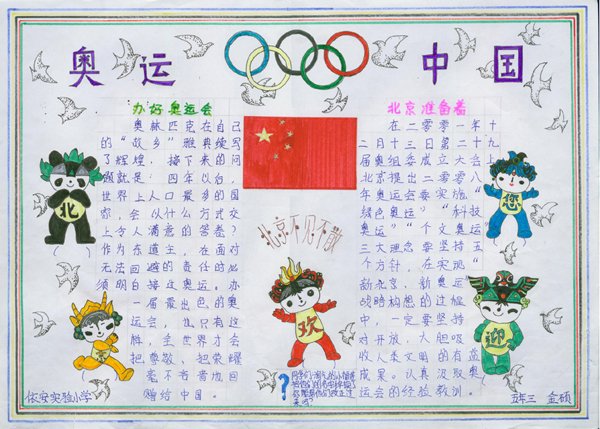 奥运
中国
办好奥运会
奥林匹克在自己
的“故乡”雅典续写
了辉煌，接下来的问
题就是：四年以后，
世界上人口最多的国
家，会以什么方式交
上令人满意的答卷？
作为东道主，在面对
无法回避的责任时必
须明白接这奥运。办
一届最出色的奥
运会，也只有这
样，全世界才会
把尊敬、把荣耀
毫不吝啬地回
赠给中国。
北
京
北京不见不散
欢
北京准备着
在二零零一年十
二月十三日第二十九
届奥组委成立大会上
北京提出二零零八
年奥运会要实施“
绿色奥运”“科技
奥运”“个文奥运”
三大理念要坚持五
个方针，在实现“
新北京、新奥运
战略构想的过程
中，一定要坚持
对开放，大胆吸
收人类文明的有益
成果。认真汲取奥
运会的经验教训。
您
迎
?
依安实验小学
五年三 金硕